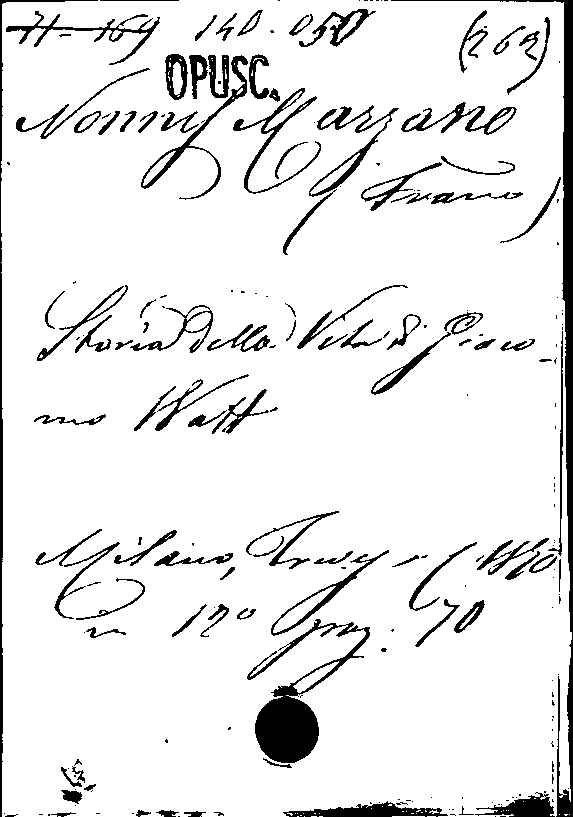 H-169 140.050 (262)
OPUSC.
Nonnis Marzano
(Franco)
Storia della Vita di Giaco-
mo Watt
Milano, Treves (1870
in 12° pag. 70